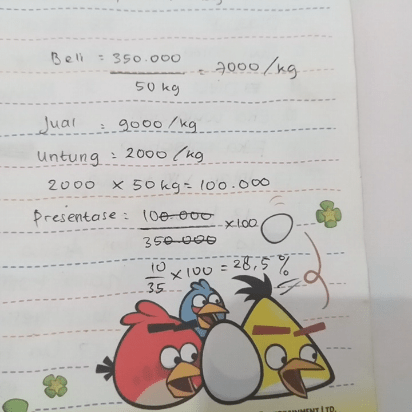 Beli = 350.000 = 7000/kg
50 kg
Jual : 9000/kg
Untung : 2000/kg
2000 x 50 kg = 100.000
Presentase : 100.000 x100
350.000
10 x 100 = 28,5 %
35
LTD.